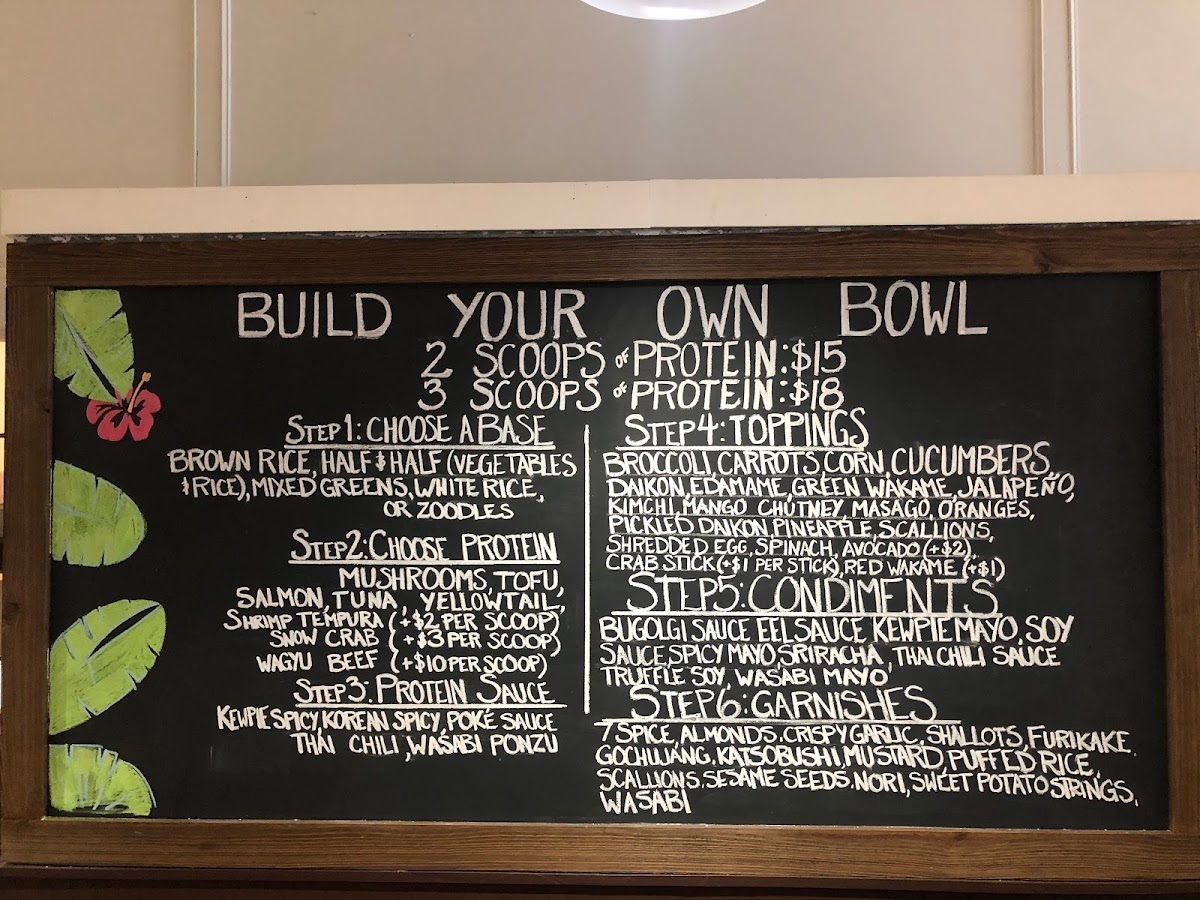 BUILD YOUR OWN BOWL
2 SCOOPS OF PROTEIN: $15
3 SCOOPS OF PROTEIN: $18
STEP 1: CHOOSE A BASE
BROWN RICE, HALF & HALF (VEGETABLES
& RICE), MIXED GREENS, WHITE RICE,
OR ZOODLES
STEP 2: CHOOSE PROTEIN
MUSHROOMS, TOFU,
SALMON, TUNA, YELLOWTAIL,
SHRIMP TEMPURA (+$2 PER SCOOP)
SNOW CRAB (+$3 PER SCOOP)
WAGYU BEEF (+$10 PER SCOOP)
STEP 3: PROTEIN SAUCE
KEWPIE SPICY, KOREAN SPICY, POKÉ SAUCE
THAI CHILI, WASABI PONZU
STEP 4: TOPPINGS
BROCCOLI, CARROTS, CORN, CUCUMBERS,
DAIKON, EDAMAME, GREEN WAKAME, JALAPEÑO,
KIMCHI, MANGO CHUTNEY, MASAGO, ORANGES,
PICKLED DAIKON, PINEAPPLE, SCALLIONS,
SHREDDED EGG, SPINACH, AVOCADO (+$2),
CRAB STICK (+$1 PER STICK), RED WAKAME (+$1)
STEP 5: CONDIMENTS
BUGOLGI SAUCE EEL SAUCE, KEWPIE MAYO, SOY
SAUCE, SPICY MAYO, SRIRACHA, THAI CHILI SAUCE
TRUFFLE SOY, WASABI MAYO
STEP 6: GARNISHES
7 SPICE, ALMONDS, CRISPY GARLIC, SHALLOTS, FURIKAKE,
GOCHUJANG, KATSOBUSHI, MUSTARD, PUFFED RICE,
SCALLIONS, SESAME SEEDS, NORI, SWEET POTATO STRINGS,
WASABI